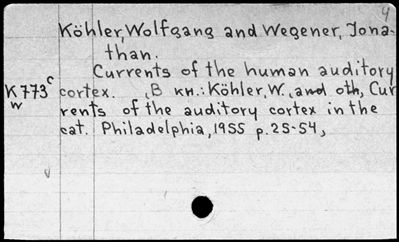 4
Köhler, Wolfgang and Wegener, Jona-
than.
Currents of the human auditory
K 773 c cortex. (В кн.: Köhler, W. and oth, Cur
w rents of the auditory cortex in the
cat. Philadelphia, 1955 p. 25-54,